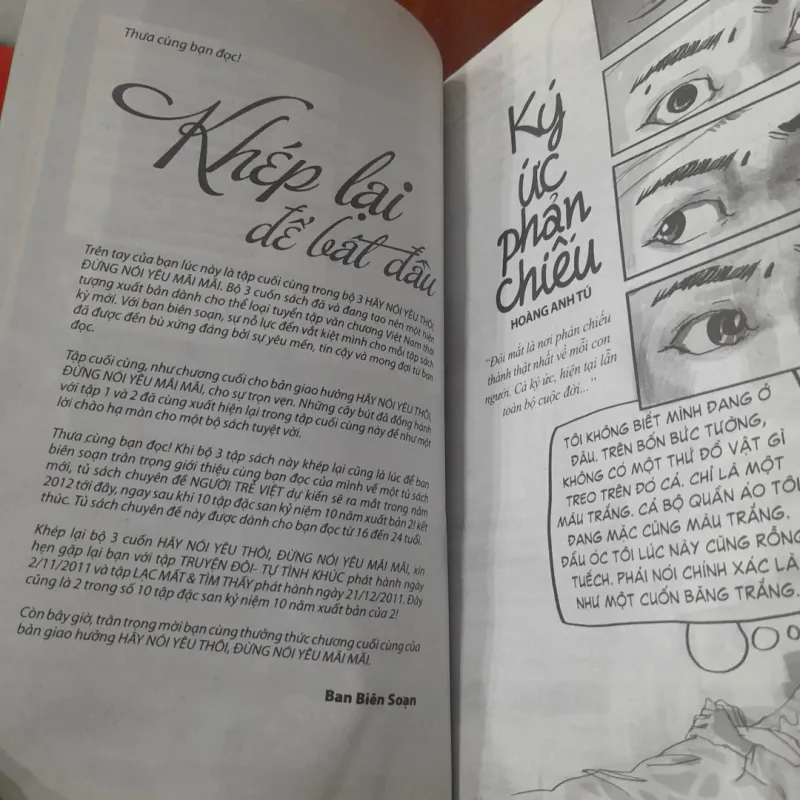 Thưa cùng bạn đọc!
Khép lại
để bắt đầu
Trên tay của bạn lúc này là tập cuối cùng trong bộ 3 HÃY NÓI YÊU THÔI,
ĐỪNG NÓI YÊU MÃI MÃI. Bộ 3 cuốn sách đã và đang tạo nên một hiện
tượng xuất bản dành cho thể loại tuyển tập văn chương Việt Nam thời
kỳ mới. Với ban biên soạn, sự nỗ lực đến vắt kiệt mình cho mỗi tập sách
đã được đền bù xứng đáng bởi sự yêu mến, tin cậy và mong đợi từ bạn
đọc.
Tập cuối cùng, như chương cuối cho bản giao hưởng HÃY NÓI YÊU THÔI,
ĐỪNG NÓI YÊU MÃI MÃI, cho sự trọn vẹn. Những cây bút đã đồng hành
với tập 1 và 2 đã cùng xuất hiện lại trong tập cuối cùng này để như một
lời chào hạ màn cho một bộ sách tuyệt vời.
Thưa cùng bạn đọc! Khi bộ 3 tập sách này khép lại cũng là lúc để ban
biên soạn trân trọng giới thiệu cùng bạn đọc của mình về một tủ sách
mới, tủ sách chuyên đề NGƯỜI TRẺ VIỆT dự kiến sẽ ra mắt trong năm
2012 tới đây, ngay sau khi 10 tập đặc san kỷ niệm 10 năm xuất bản 2! kết
thúc. Tủ sách chuyên đề này được dành cho bạn đọc từ 16 đến 24 tuổi.
Khép lại bộ 3 cuốn HÃY NÓI YÊU THÔI, ĐỪNG NÓI YÊU MÃI MÃI, xin
hẹn gặp lại bạn với tập TRUYỆN ĐÔI- TỰ TÌNH KHÚC phát hành ngày
2/11/2011 và tập LẠC MẤT & TÌM THẤY phát hành ngày 21/12/2011. Đây
cũng là 2 trong số 10 tập đặc san kỷ niệm 10 năm xuất bản của 2!
Còn bây giờ, trân trọng mời bạn cùng thưởng thức chương cuối cùng của
bản giao hưởng HÃY NÓI YÊU THÔI, ĐỪNG NÓI YÊU MÃI MÃI.
Ban Biên Soạn
Ký
ức
phản
chiếu
HOÀNG ANH TÚ
"Đôi mắt là nơi phản chiếu
thành thật nhất về mỗi con
người. Cả ký ức, hiện tại lẫn
toàn bộ cuộc đời..."
TÔI KHÔNG BIẾT MÌNH ĐANG Ở
ĐÂU. TRÊN BỐN BỨC TƯỜNG,
KHÔNG CÓ MỘT THỨ ĐỒ VẬT GÌ
TREO TRÊN ĐÓ CẢ, CHỈ LÀ MỘT
MÀU TRẮNG. CẢ BỘ QUẦN ÁO TÔI
ĐANG MẶC CŨNG MÀU TRẮNG.
ĐẦU ÓC TÔI LÚC NÀY CŨNG RỖNG
TUẾCH. PHẢI NÓI CHÍNH XÁC LÀ
NHƯ MỘT CUỐN BĂNG TRẮNG.